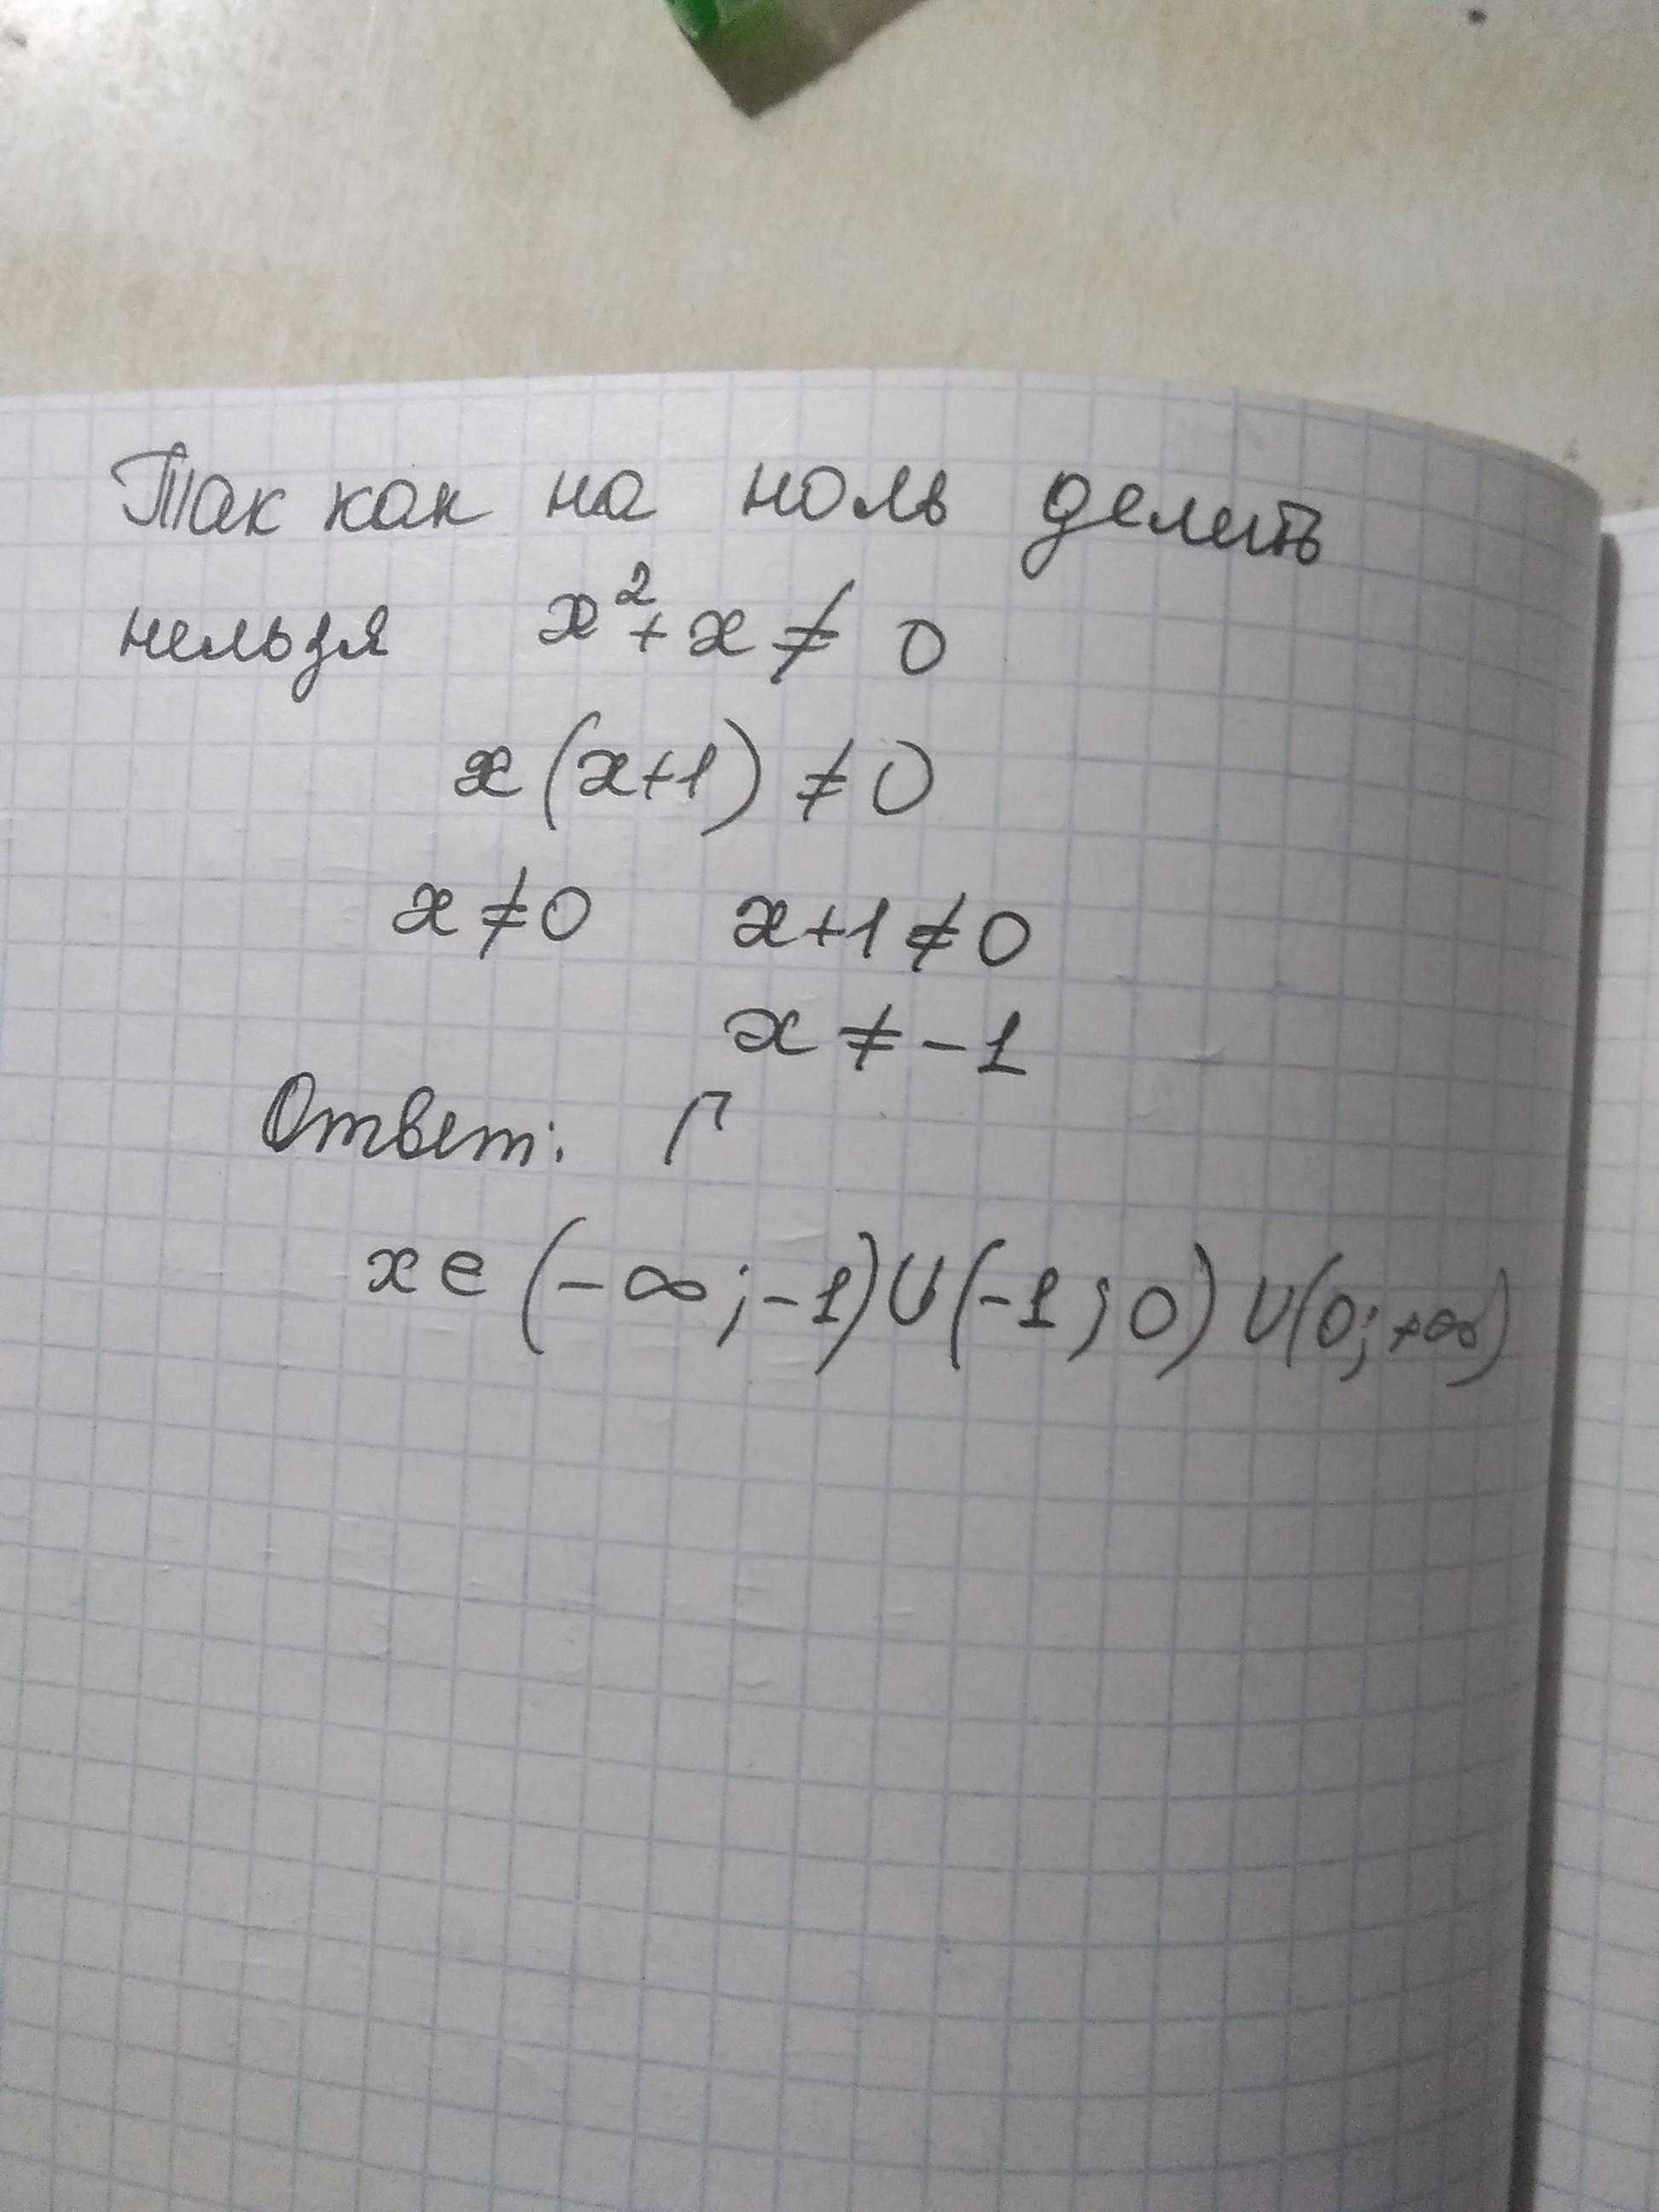 Так как на ноль делить
нельзя x²+x ≠ 0
x(x+1) ≠ 0
x ≠ 0 x+1 ≠ 0
x ≠ -1
Ответ:
x ∈ (-∞; -1) ∪ (-1; 0) ∪ (0; +∞)